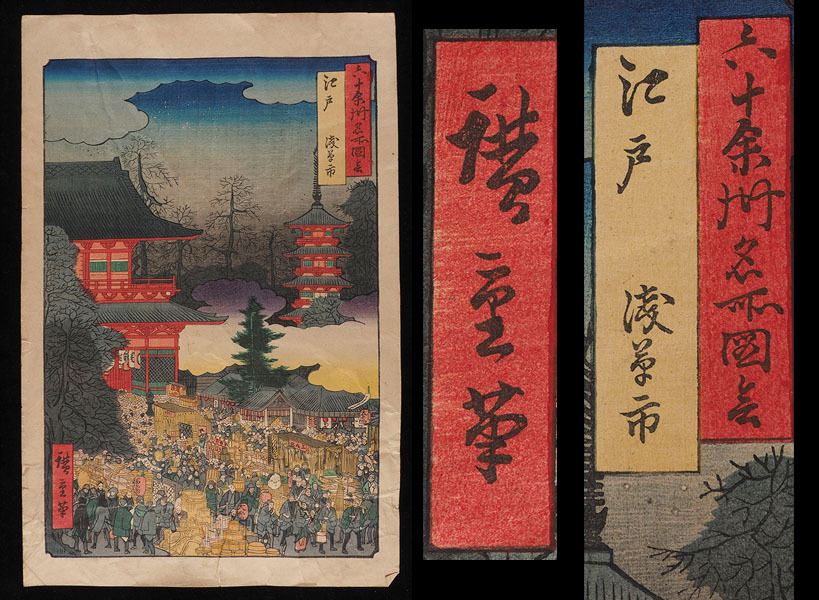 六十余州名所圖会
江戸 淺草市
廣重筆
廣重筆
六十余州名所圖会
江戸 淺草市